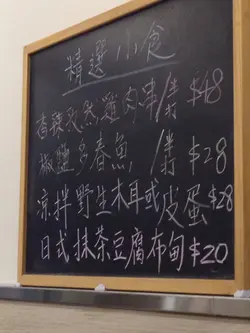 精選小食
香辣孜然雞肉串/爿 $48
椒鹽多春魚 /爿 $28
涼拌野生木耳或皮蛋 $28
日式抹茶豆腐布甸 $20